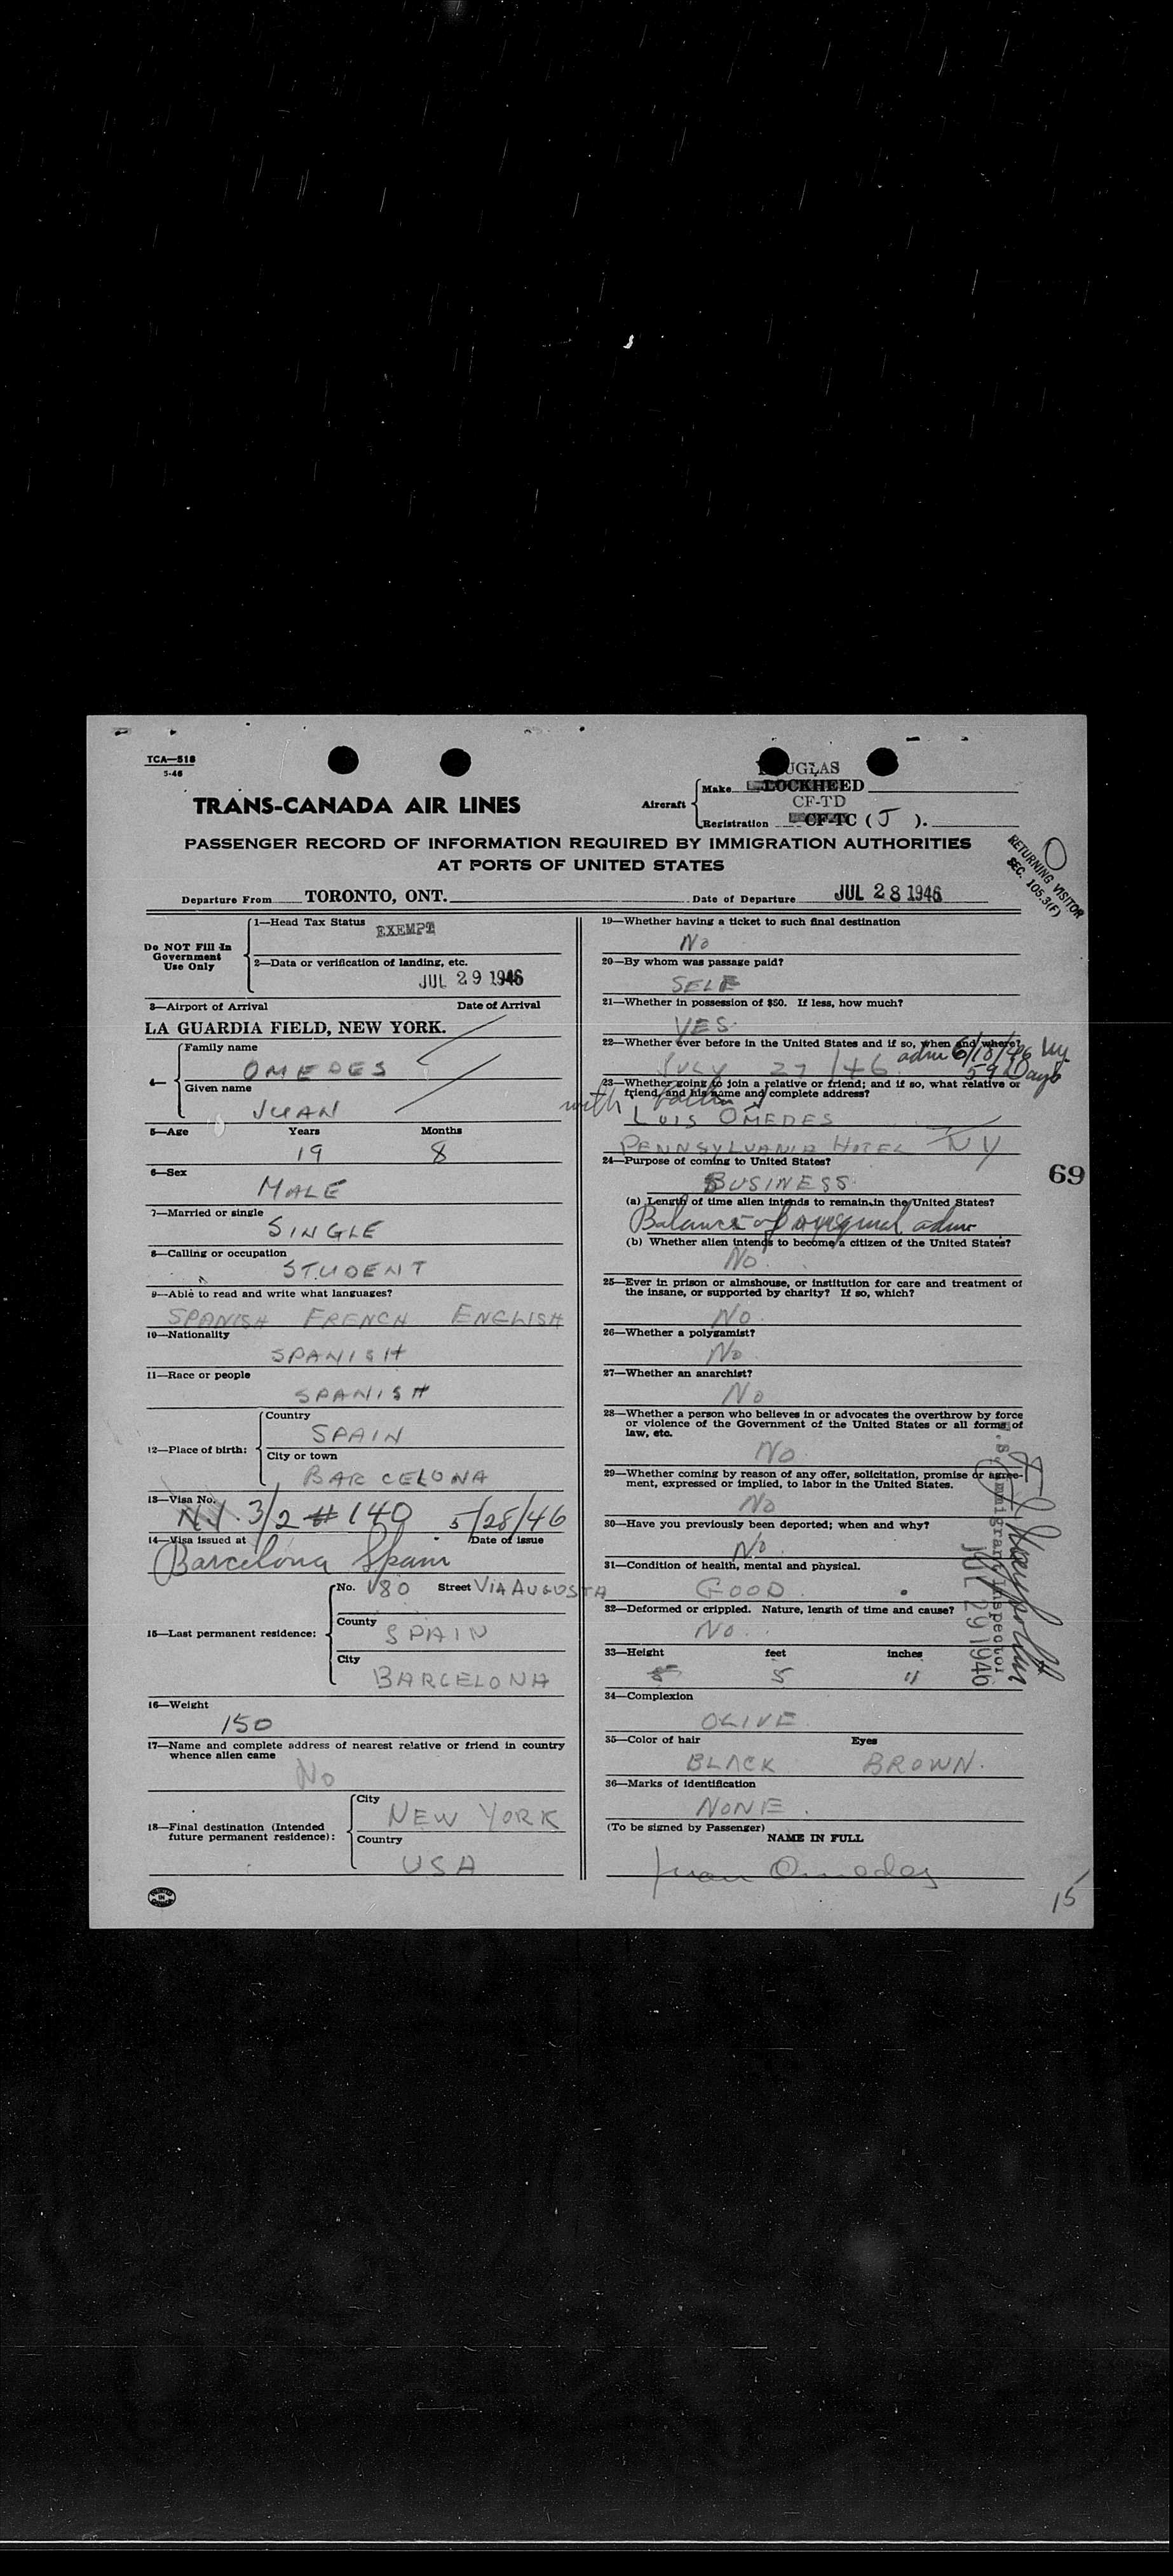 TCA—518
5-46
TRANS-CANADA AIR LINES
Aircraft
Make
DOUGLAS
LOCKHEED
CF-TD
Registration CF-TC ( J ).
PASSENGER RECORD OF INFORMATION REQUIRED BY IMMIGRATION AUTHORITIES
AT PORTS OF UNITED STATES
RETURNING VISITOR
SEC. 105.3(F)
Departure From TORONTO, ONT. Date of Departure JUL 28 1946
Do NOT Fill In
Government
Use Only
1—Head Tax Status EXEMPT
2—Data or verification of landing, etc.
JUL 29 1946
3—Airport of Arrival Date of Arrival
LA GUARDIA FIELD, NEW YORK.
4—
Family name
OMEDES
Given name
JUAN
5—Age Years Months
19 8
6—Sex
MALE
7—Married or single
SINGLE
8—Calling or occupation
STUDENT
9—Able to read and write what languages?
SPANISH FRENCH ENGLISH
10—Nationality
SPANISH
11—Race or people
SPANISH
12—Place of birth:
Country
SPAIN
City or town
BARCELONA
13—Visa No.
3/2 # 140 5/28/46
14—Visa issued at Date of issue
Barcelona Spain
15—Last permanent residence:
No. 180 Street VIA AUGUSTA
County
SPAIN
City
BARCELONA
16—Weight
150
17—Name and complete address of nearest relative or friend in country
whence alien came
NO
18—Final destination (Intended
future permanent residence):
City
NEW YORK
Country
USA
19—Whether having a ticket to such final destination
No
20—By whom was passage paid?
SELF
21—Whether in possession of $50. If less, how much?
YES
22—Whether ever before in the United States and if so, when and where?
JULY 27 / 46 adm 6/18/46 NY
59 Days
23—Whether going to join a relative or friend; and if so, what relative or
friend, and his name and complete address?
with
LUIS OMEDES
PENNSYLVANIA HOTEL NY
24—Purpose of coming to United States?
BUSINESS
(a) Length of time alien intends to remain in the United States?
Balance of original adm
(b) Whether alien intends to become a citizen of the United States?
No
25—Ever in prison or almshouse, or institution for care and treatment of
the insane, or supported by charity? If so, which?
No
26—Whether a polygamist?
No
27—Whether an anarchist?
No
28—Whether a person who believes in or advocates the overthrow by force
or violence of the Government of the United States or all forms of
law, etc.
No
29—Whether coming by reason of any offer, solicitation, promise or agree-
ment, expressed or implied, to labor in the United States.
No
30—Have you previously been deported; when and why?
No
31—Condition of health, mental and physical.
GOOD
32—Deformed or crippled. Nature, length of time and cause?
No
33—Height feet inches
5 11
34—Complexion
OLIVE
35—Color of hair Eyes
BLACK BROWN.
36—Marks of identification
NONE
(To be signed by Passenger)
NAME IN FULL
Juan Omedes
69
U.S. Immigrant Inspector
JUL 29 1946
15